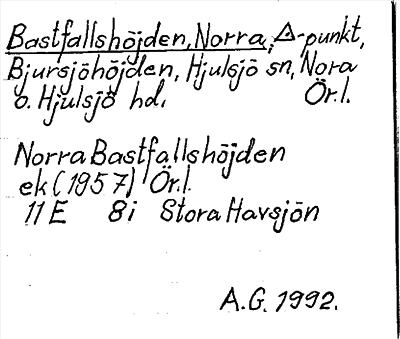 Bastfallshöjden, Norra, △-punkt,
Bjursjöhöjden, Hjulsjö sn, Nora
o. Hjulsjö hd, Ör.l.
Norra Bastfallshöjden
ek (1957) Ör.l.
11 E 8i Stora Havsjön
A.G. 1992.